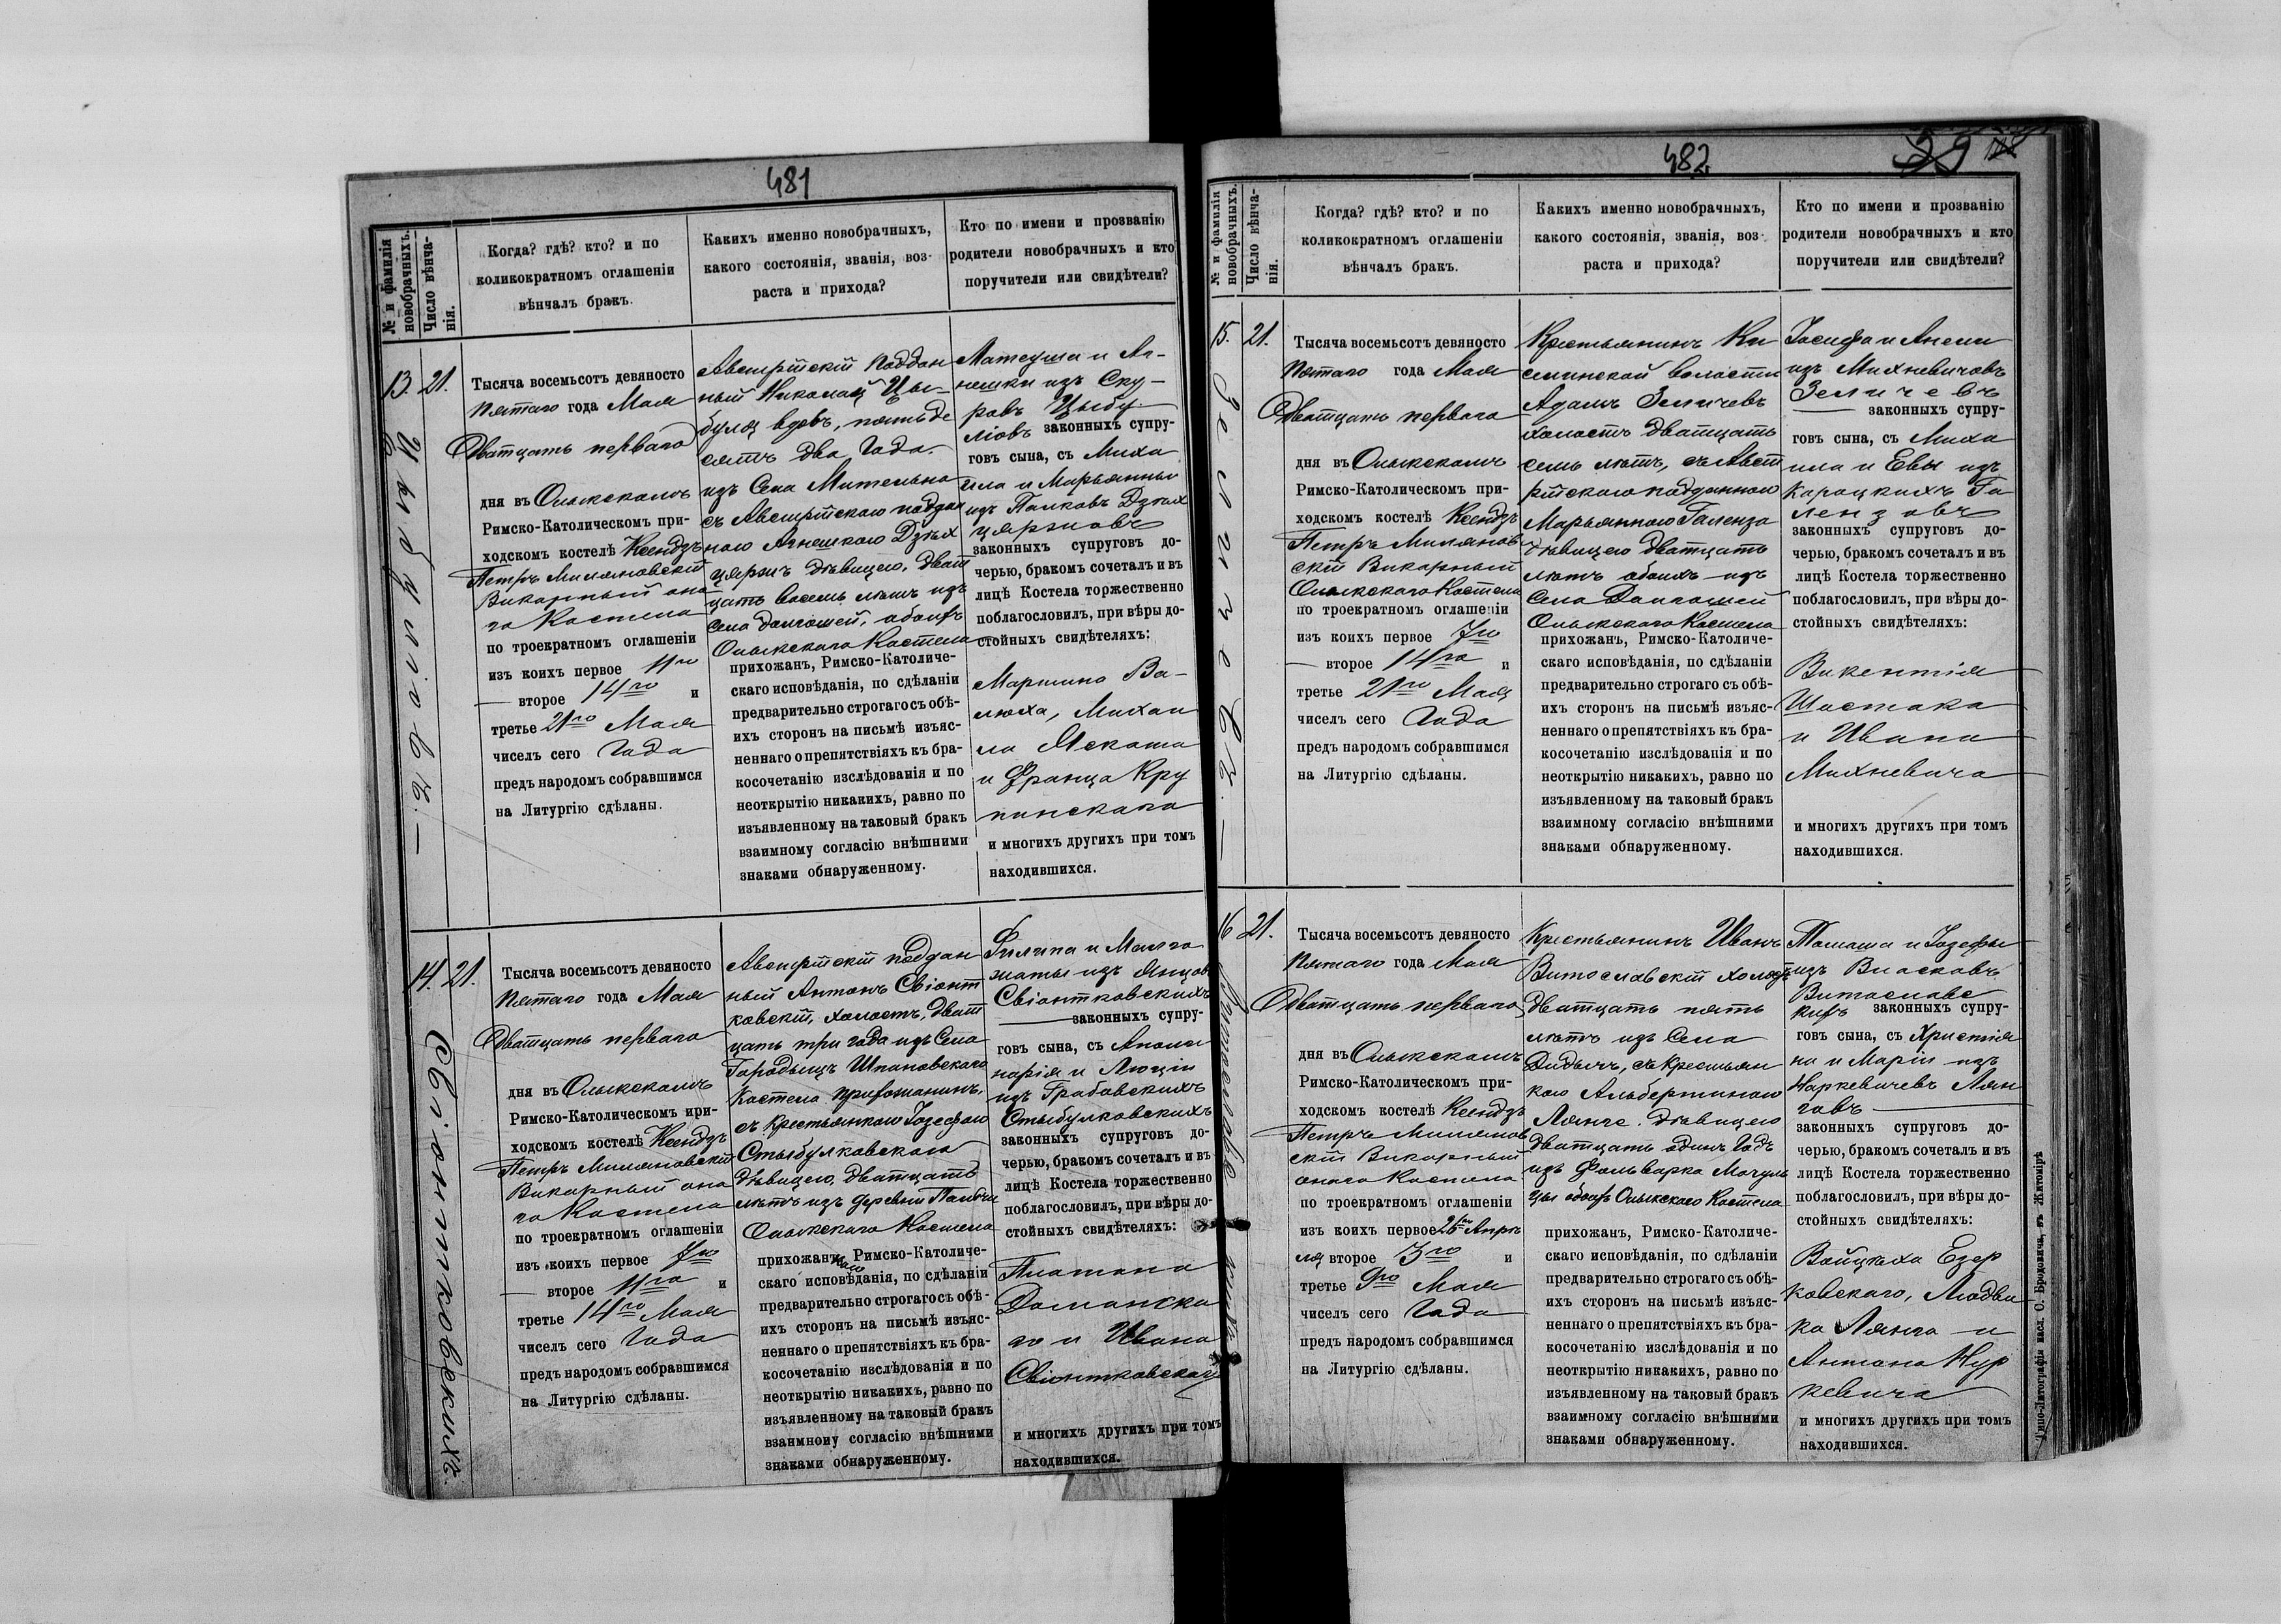 481
№ и фамилія новобрачныхъ.
Число вѣнча-
нія.
Когда? гдѣ? кто? и по
коликократномъ оглашеніи
вѣнчалъ бракъ.
Какихъ именно новобрачныхъ,
какого состоянія, званія, воз-
раста и прихода?
Кто по имени и прозванію
родители новобрачныхъ и кто
поручители или свидѣтели?
13.
21.
Тысяча восемьсотъ девяносто
пятаго года Мая
Дватцать перваго
дня въ Олыкскомъ
Римско-Католическомъ при-
ходскомъ костелѣ Ксендзъ
Петръ Миляновскій
Викарный она
го Костела
по троекратномъ оглашеніи
изъ коихъ первое 11го
второе 14го и
третье 21го Мая
чиселъ сего Года
предъ народомъ собравшимся
на Литургію сдѣланы.
Австрійскій поддан
ный Николай Цы-
буля вдовъ, пятьде
сятъ два Года.
изъ Села Мительна
съ Австрійскою поддан
ною Агнешкою Дзѣх
цяржъ дѣвицею, дват
цать восемь лѣтъ изъ
села Долгошей, обоихъ
Олыкскаго Костела
прихожанъ, Римско-Католиче-
скаго исповѣданія, по сдѣланіи
предварительно строгаго съ обѣ-
ихъ сторонъ на письмѣ изъяс-
неннаго о препятствіяхъ къ бра-
косочетанію изслѣдованія и по
неоткрытію никакихъ, равно по
изъявленному на таковый бракъ
взаимному согласію внѣшними
знаками обнаруженному.
Матеуша и Аг-
нешки изъ Ску-
ровъ Цыбу-
ліовъ законныхъ супру-
говъ сына, съ Миха
ила и Марьянны
изъ Палковъ Дзѣх
цяржовъ
законныхъ супруговъ до-
черью, бракомъ сочеталъ и въ
лицѣ Костела торжественно
поблагословилъ, при вѣры до-
стойныхъ свидѣтеляхъ:
Мартина Ва-
люха, Михаи
ла Яскаша
и Франца Кру
пинскаго
и многихъ другихъ при томъ
находившихся.
Цыбуліовъ.
14.
21.
Тысяча восемьсотъ девяносто
пятаго года Мая
Дватцать перваго
дня въ Олыкскомъ
Римско-Католическомъ при-
ходскомъ костелѣ Ксендзъ
Петръ Миляновскій
Викарный она
го Костела
по троекратномъ оглашеніи
изъ коихъ первое 7го
второе 11го и
третье 14го Мая
чиселъ сего Года
предъ народомъ собравшимся
на Литургію сдѣланы.
Австрійскій поддан
ный Антонъ Свіонт
ковскій, холостъ, дват
цать три года изъ Села
Городыщъ Шпановскаго
Костела прихожанинъ,
съ крестьянкою Іозефою
Стыбулковскою
дѣвицею, дватцать
лѣтъ изъ деревни
Олыкскаго Костела
прихожанъ, Римско-Католиче-
скаго исповѣданія, по сдѣланіи
предварительно строгаго съ обѣ-
ихъ сторонъ на письмѣ изъяс-
неннаго о препятствіяхъ къ бра-
косочетанію изслѣдованія и по
неоткрытію никакихъ, равно по
изъявленному на таковый бракъ
взаимному согласію внѣшними
знаками обнаруженному.
Филипа и Малго
жаты изъ Янцов
Свіонтковскихъ
законныхъ супру-
говъ сына, съ Аполи
нарія и Люціи
изъ Грабовскихъ
Стыбулковскихъ
законныхъ супруговъ до-
черью, бракомъ сочеталъ и въ
лицѣ Костела торжественно
поблагословилъ, при вѣры до-
стойныхъ свидѣтеляхъ:
Платона
Доманска
го и Ивана
Свіонтковскаго
и многихъ другихъ при томъ
находившихся.
Свіонтковскихъ.
482
59
№ и фамилія новобрачныхъ.
Число вѣнча-
нія.
Когда? гдѣ? кто? и по
коликократномъ оглашеніи
вѣнчалъ бракъ.
Какихъ именно новобрачныхъ,
какого состоянія, званія, воз-
раста и прихода?
Кто по имени и прозванію
родители новобрачныхъ и кто
поручители или свидѣтели?
15.
21.
Тысяча восемьсотъ девяносто
пятаго года Мая
Дватцать перваго
дня въ Олыкскомъ
Римско-Католическомъ при-
ходскомъ костелѣ Ксендзъ
Петръ Миляновъ
скій Викарный
Олыкскаго Костела
по троекратномъ оглашеніи
изъ коихъ первое 7го
второе 14го и
третье 21го Мая
чиселъ сего Года
предъ народомъ собравшимся
на Литургію сдѣланы.
Крестьянинъ Ки
селинской волости
Адамъ Зеличевъ
холостъ дватцать
семь лѣтъ, съ Авст
рійскою подданною
Марьянною Галенза
дѣвицею дватцать
лѣтъ обоихъ изъ
Села Долгошей
Олыкскаго Костела
прихожанъ, Римско-Католиче-
скаго исповѣданія, по сдѣланіи
предварительно строгаго съ обѣ-
ихъ сторонъ на письмѣ изъяс-
неннаго о препятствіяхъ къ бра-
косочетанію изслѣдованія и по
неоткрытію никакихъ, равно по
изъявленному на таковый бракъ
взаимному согласію внѣшними
знаками обнаруженному.
Іосифа и Анели
изъ Михневичовъ
Зеличевъ
законныхъ супру-
говъ сына, съ Миха
ила и Евы изъ
Кароцкихъ Га
лензовъ
законныхъ супруговъ до-
черью, бракомъ сочеталъ и въ
лицѣ Костела торжественно
поблагословилъ, при вѣры до-
стойныхъ свидѣтеляхъ:
Викентія
Шостака
и Ивана
Михневича
и многихъ другихъ при томъ
находившихся.
16
21.
Тысяча восемьсотъ девяносто
пятаго года Мая
Дватцать перваго
дня въ Олыкскомъ
Римско-Католическомъ при-
ходскомъ костелѣ Ксендзъ
Петръ Миляновъ
скій Викарный
онаго Костела
по троекратномъ оглашеніи
изъ коихъ первое 26го Апрѣ
ля второе 3го и
третье 9го Мая
чиселъ сего Года
предъ народомъ собравшимся
на Литургію сдѣланы.
Крестьянинъ Иванъ
Витославскій холостъ
дватцать пять
лѣтъ изъ Села
Дидычъ, съ крестьян
кою Альбертиною
Лянге дѣвицею
дватцать одинъ Годъ
изъ Фольварка Мочуль
цы обоихъ Олыкскаго Костела
прихожанъ, Римско-Католиче-
скаго исповѣданія, по сдѣланіи
предварительно строгаго съ обѣ-
ихъ сторонъ на письмѣ изъяс-
неннаго о препятствіяхъ къ бра-
косочетанію изслѣдованія и по
неоткрытію никакихъ, равно по
изъявленному на таковый бракъ
взаимному согласію внѣшними
знаками обнаруженному.
Томаша и Іозефы
изъ Власковъ
Витославс
кихъ законныхъ супру-
говъ сына, съ Христія
на и Маріи изъ
Наркевичевъ Лян
говъ
законныхъ супруговъ до-
черью, бракомъ сочеталъ и въ
лицѣ Костела торжественно
поблагословилъ, при вѣры до-
стойныхъ свидѣтеляхъ:
Войцѣха Езер
ковскаго, Людви
ка Лянга и
Антона Нур
кевича
и многихъ другихъ при томъ
находившихся.
Типо-Литографія насл. О. Бродовича, въ Житомірѣ